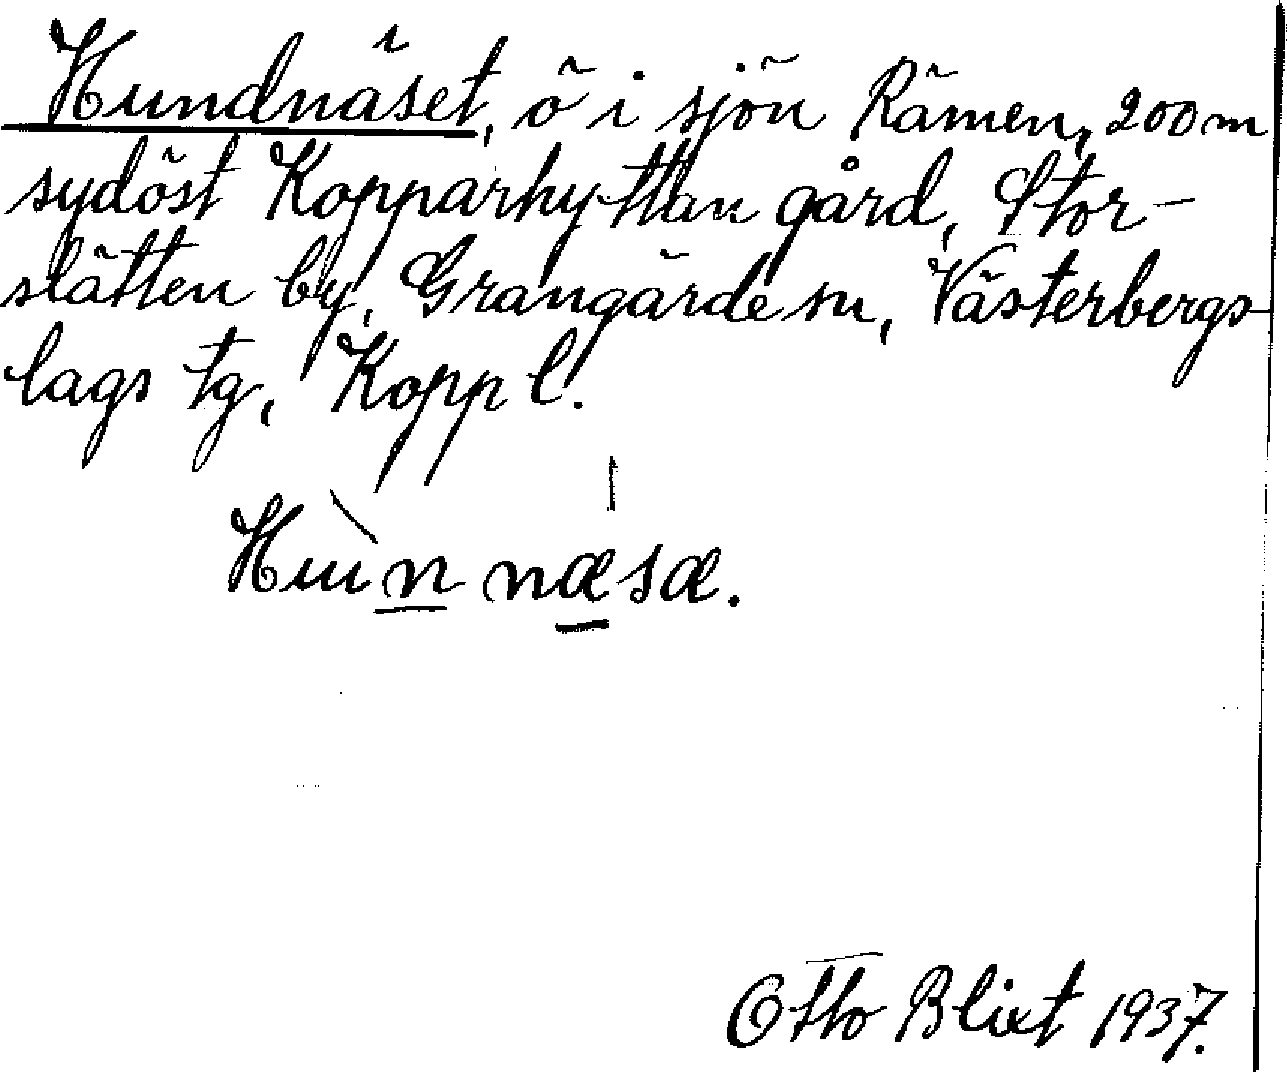 Hundnäset, ö i sjön Rämen, 200 m
sydöst Kopparhyttan gård, Stor-
slätten by, Grangärde sn, Västerbergs-
lags tg, Kopp l.
Hùnnæsæ.
Otto Blixt 1937.